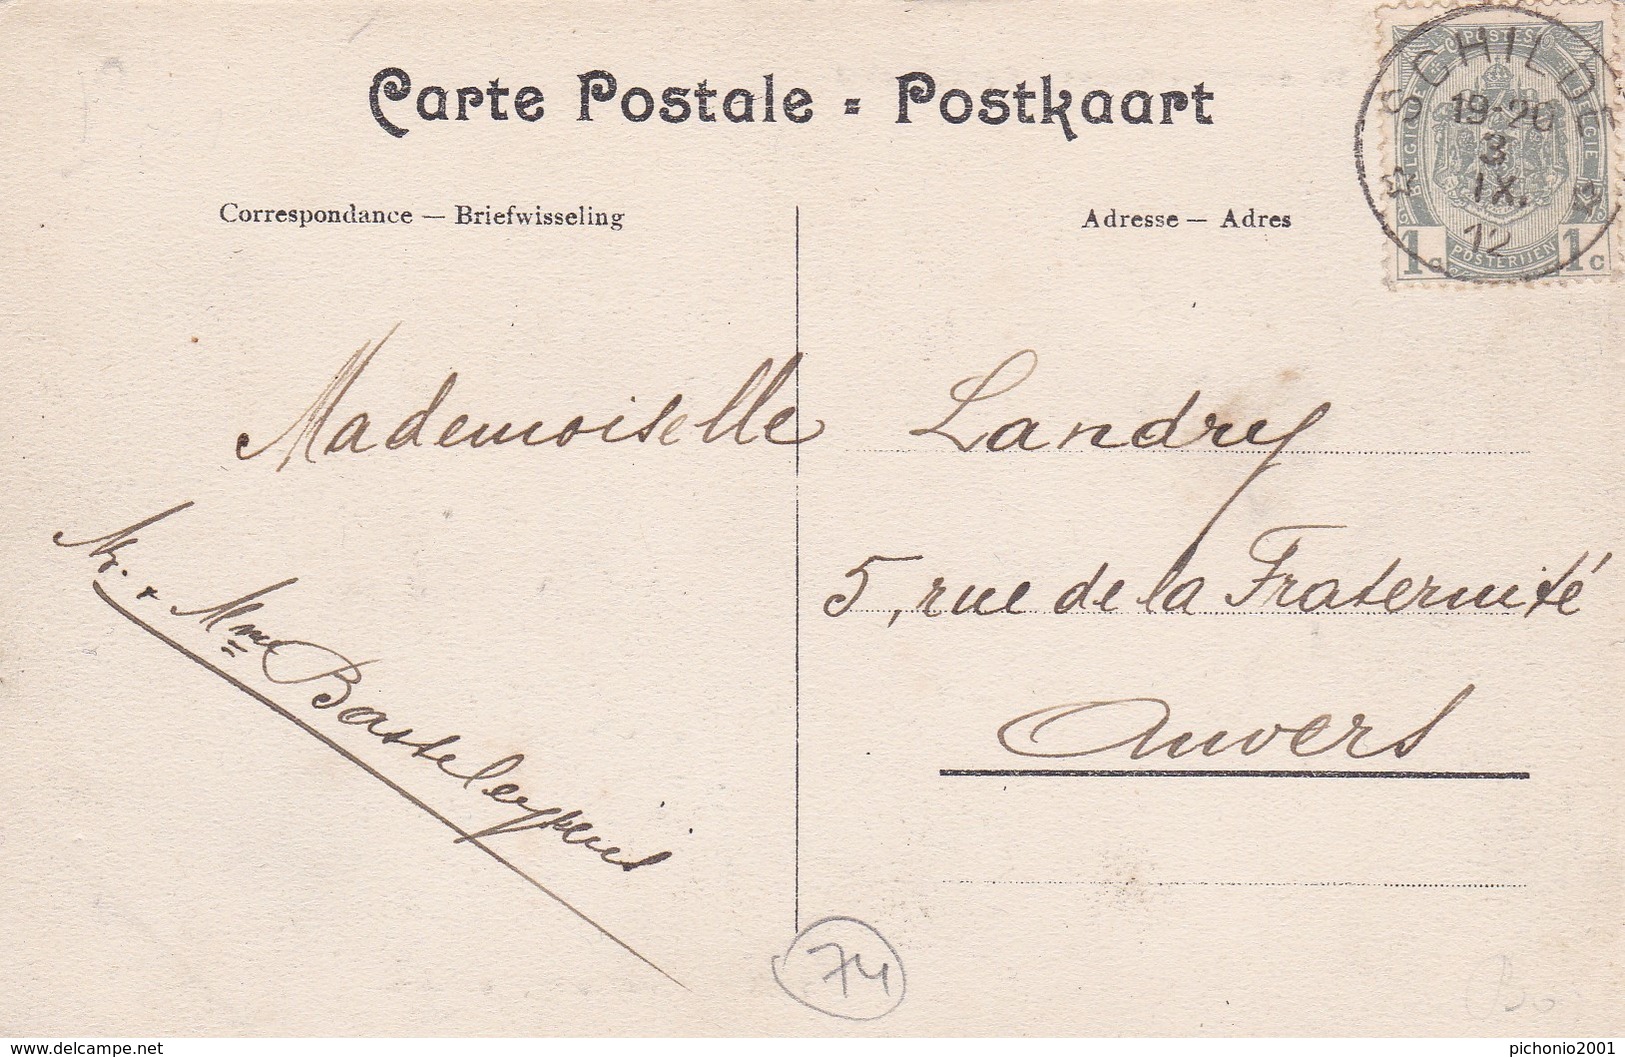 Carte Postale = Postkaart
SCHILDE
19-20
3
IX.
12
POSTES
BELGIQUE
BELGIE
1c
POSTERIJEN
1c
Correspondance — Briefwisseling
Adresse — Adres
Mademoiselle Landry
5, rue de la Fraternité
Anvers
Mr. + Mme
74
www.delcampe.net
pichonio2001